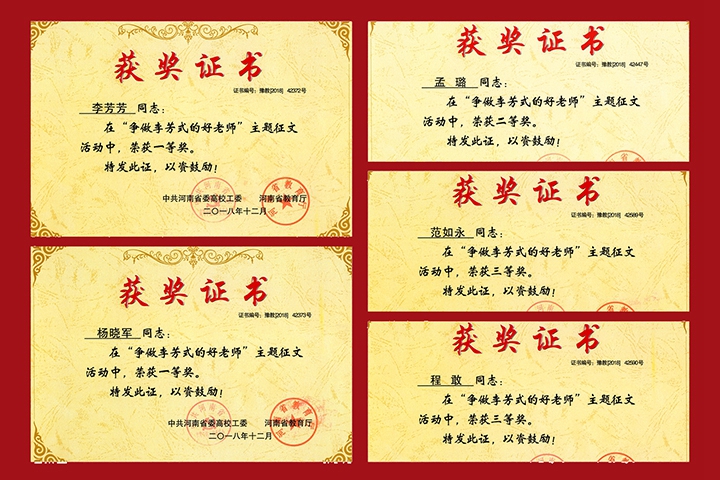 获奖证书
证书编号：豫教[2018] 42372号
李芳芳 同志：
在“争做李芳式的好老师”主题征文
活动中，荣获一等奖。
特发此证，以资鼓励！
中共河南省委高校工委 河南省教育厅
二〇一八年十二月
获奖证书
证书编号：豫教[2018] 42373号
杨晓军 同志：
在“争做李芳式的好老师”主题征文
活动中，荣获一等奖。
特发此证，以资鼓励！
中共河南省委高校工委 河南省教育厅
二〇一八年十二月
获奖证书
证书编号：豫教[2018] 42447号
孟 璐 同志：
在“争做李芳式的好老师”主题征文
活动中，荣获二等奖。
特发此证，以资鼓励！
获奖证书
证书编号：豫教[2018] 42589号
范如永 同志：
在“争做李芳式的好老师”主题征文
活动中，荣获三等奖。
特发此证，以资鼓励！
获奖证书
证书编号：豫教[2018] 42590号
程 敢 同志：
在“争做李芳式的好老师”主题征文
活动中，荣获三等奖。
特发此证，以资鼓励！